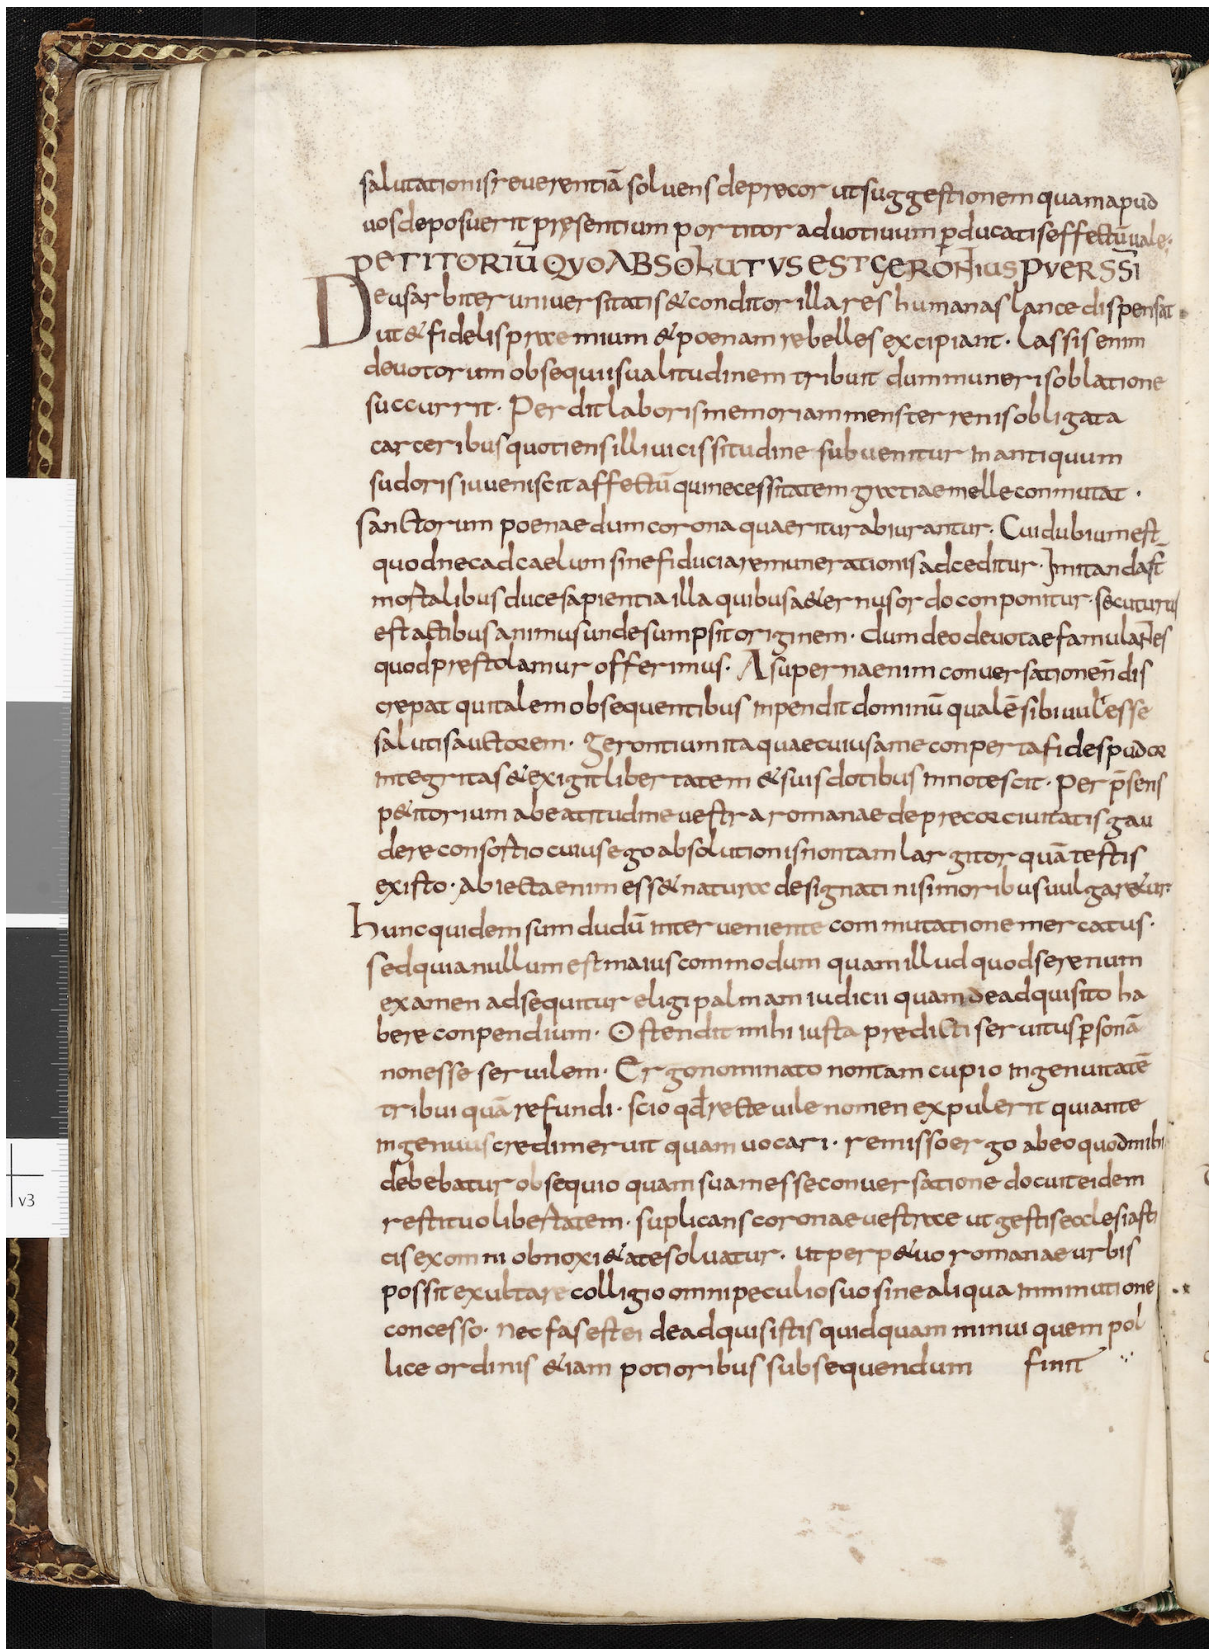 salutationis reuerentiā soluens deprecor ut suggestionem quam apud
uos deposuerit presentium portitor ad uotiuum ꝑducatis effectū uale.
PETITORIŪ QVO ABSOLUTVS EST GERONTIUS PVER SSI
Deus arbiter uniuersitatis & conditor illa res humanas lance dispensat
ut & fidelis praemium & poenam rebelles excipiant. Lassis enim
deuotorum obsequiis ualitudinem tribuit dum muneris oblatione
succurrit. Perdit laboris memoriam mens terrenis obligata
carceribus quotiens illi uicissitudine subuenitur in antiquum
sudoris iuueniscit affectū qui necessitatem gratiae melle conmutat.
sanctorum poenae dum corona quaeritur abiurantur. Cui dubium est
quod nec ad caelum sine fiducia remunerationis adceditur. Imitanda st
mortalibus duce sapientia illa quibus a&ernus ordo conponitur. secuturus
est actibus animus unde sumpsit originem. dum deo deuotae famulantes
quod prestolamur offerimus. A superna enim conuersatione n̄ dis
crepat qui talem obsequentibus inpendit dominū qualē sibi uult esse
salutis auctorem. Gerontium itaquae cuius a me conperta fides pudor
integritas & exigit libertatem & suis dotibus innotescit. Per p̄sens
p&itorium a beatitudine uestra romanae deprecor ciuitatis gau
dere consortio cuius ego absolutionis non tam largitor quā testis
existo. abiecta enim ess& naturae designati nisi moribus uulgar&ur
hunc quidem sum dudū interueniente commutatione mercatus.
sed quia nullum est maius commodum quam illud quod serenum
examen adsequitur eligi palmam iudicii quam de adquisito ha
bere conpendium. Ostendit mihi iusta predicti seruitus ꝑsonā
non esse seruilem. Ergo nominato non tam cupio ingenuitatē
tribui quā refundi. scio qđ recte uile nomen expulerit qui ante
ingenuus credi meruit quam uocari. remisso ergo ab eo quod mihi
debebatur obsequio quam suam esse conuersatione docuit eidem
restituo libertatem. suplicans coronae uestrae ut gestis ecclesiasti
cis ex omni obnoxi&ate soluatur. ut perp&uo romanae urbis
possit exultare colligio omni peculio suo sine aliqua inminutione
concesso. nec fas est ei de adquisistis quidquam minui quem pol
lice ordinis &iam potioribus subsequendum finit